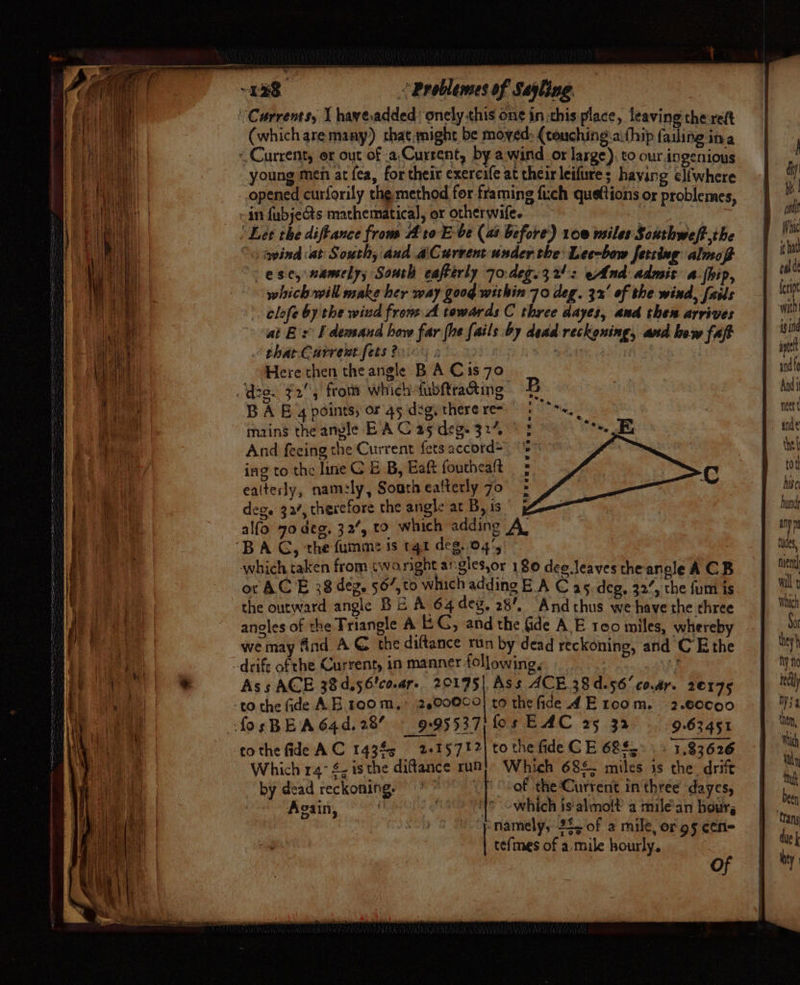 128 Problemes of Sayling.
Currents, I have added onely this one in this place, leaving the rest
(which are many) that might be moved (touching a ship sailing in a
Current, or out of a Current, by a wind or large) to our ingenious
young men at sea, for their exercise at their leisure; having elswhere
opened cursorily the method for framing such questions or problemes,
in subjects mathematical, or otherwise.
Let the distance from A to E be (as before) 100 miles Southwest, the
wind at South, and a Current under the Lee-bow setting almost
e s e, namely, South easterly 70 deg. 32': And admit a ship,
which will make her way good within 70 deg. 32' of the wind, sails
close by the wind from A towards C three dayes, and then arrives
at E: I demand how far she sails by dead reckoning, and how fast
that Current sets?
Here then the angle B A C is 70
deg. 32', from which substracting
B A E 4 points, or 45 deg. there re-
mains the angle E A C 25 deg. 32',
And seeing the Current sets accord-
ing to the line C E B, East southeast
easterly, namely, South easterly 70
deg. 32', therefore the angle at B, is
also 70 deg. 32', to which adding
B
E
C
A
B A C, the summe is 141 deg. 04',
which taken from two right angles, or 180 deg. leaves the angle A C B
or A C E 38 deg. 56', to which adding E A C 25 deg. 32', the sum is
the outward angle B E A 64 deg. 28'. And thus we have the three
angles of the Triangle A E C, and the side A E 100 miles, whereby
we may find A C the distance run by dead reckoning, and C E the
drift of the Current, in manner following.
As s ACE 38 d. 56' co. ar. 20175
to the side A E 100 m. 2,00000
so s B E A 64 d. 28' 9.95537
to the side A C 143 2.15712
Which 14 is the distance run
by dead reckoning.
Again,
As s ACE 38 d. 56' co. ar. 20175
to the side A E 100 m. 2.00000
so s E A C 25 32 9.63451
to the side C E 68 1,83626
Which 68 miles is the drift
of the Current in three dayes,
which is almost a mile an hour,
namely, of a mile, or 95 cen-
tesmes of a mile hourly.
Of